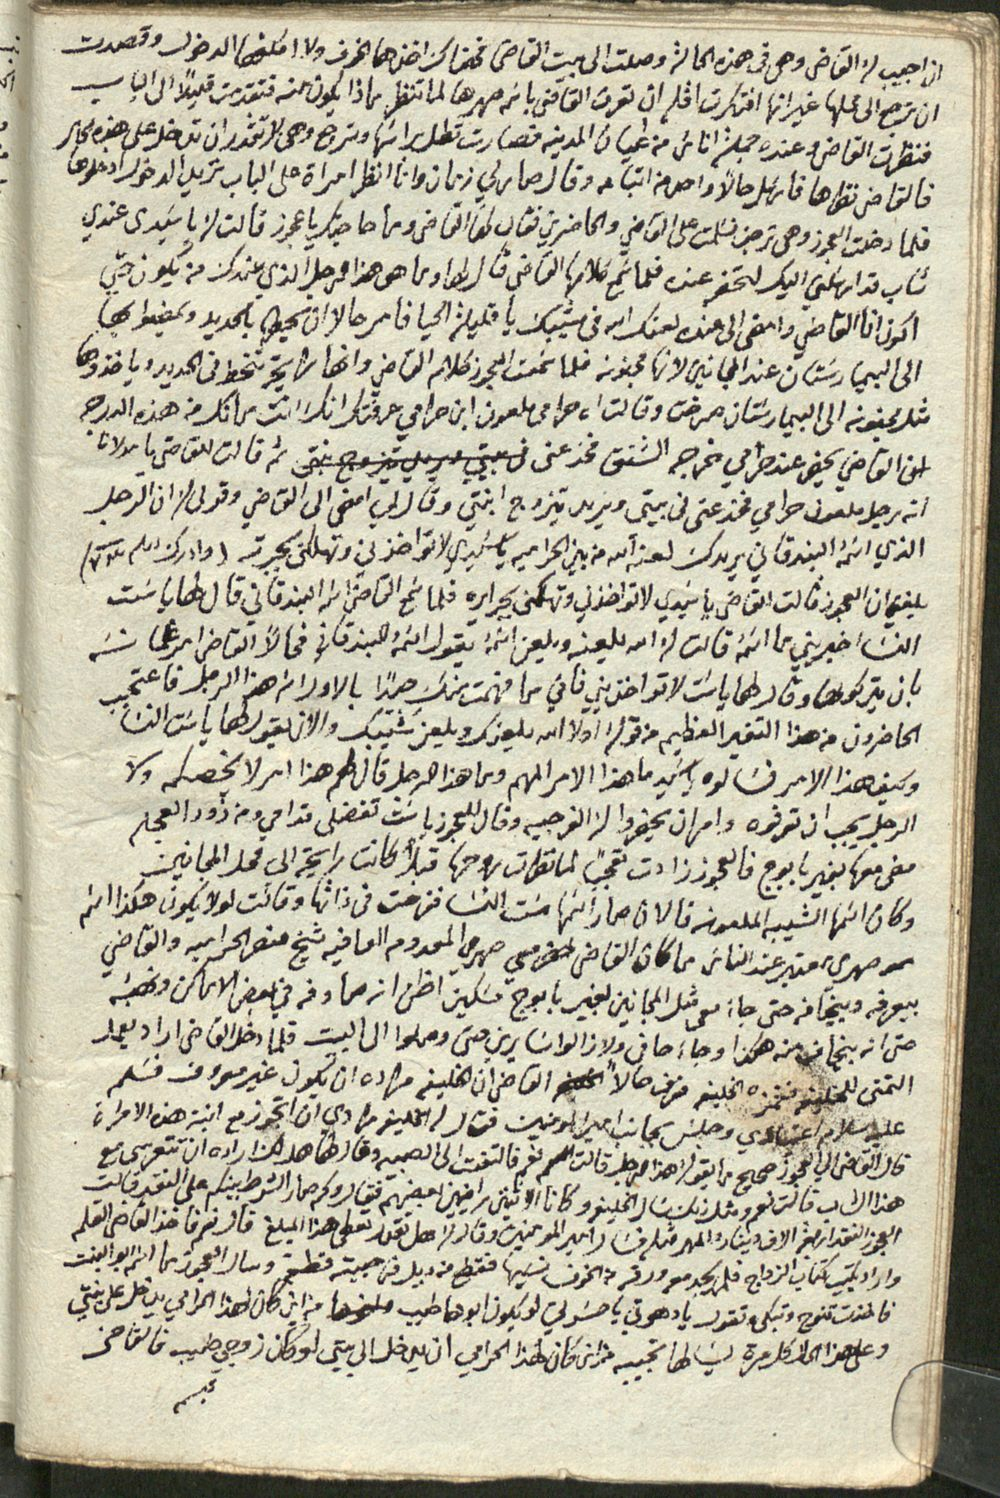 ان اجيب له القاضي وهي في هذه الحالة وصلت الى بيت القاضي فهناك اخذها الخوف ولا امكنها الدخول وقصدت
ان ترجع الى محلها غير انها افتكرت اقلم ان تعرف القاضي باسم صهرها لما تنظر ماذا يكون منه فتقدمت قليلاً الى الباب
فنظرت القاضي وعنده جملة اناس من اعيان المدينه فصارت تطل براسها وترجع وهي لا تقدر ان تدخل على هذه
فالقاضي نظرها فارسل حالاً واحد من اتباعه وقال صار لي زمان وانا انظر امراة على الباب تريد الدخول ادخلوها
فلما دخلت العجوز وهي ترجف سلمت على القاضي والحاضرين فقال لها القاضي وما حاجتك يا عجوز قالت له يا سيدي عندي
شاب قد ارسلني اليك لتحضر عنده فلما سمع كلامها القاضي قال لها وما هو هذا الرجل الذي عندك من يكون حتى
اكون انا القاضي وامضي الى عنده لعنك الله في شيبتك يا قليلة الحيا فامر حالا ان بالحديد ويمضوا بها
الى البيمارستان عند المجانين لانها مجنونه فلما سمعت العجوز كلام القاضي وانها رايحة تنحط في الحديد وياخذوها
مثل مجنونه الى البيمارستان صرخت وقالت اه حرامي ملعون ابن حرامي عرفتك انك انت مرادك من هذه الدرجه
القاضي يحضر عند حرامي نهار جه الشنق فخدعني ثم قالت للقاضي يا مولانا
انه رجل ملعون حرامي فخدعني في بيتي ويريد يتزوج ابنتي وقال لي امضي الى القاضي وقولي له ان الرجل
الذي اسمه البندقاني يريدك لعنه الله من بين الحراميه يا سيدي لا تواخذني وتهلكني بجرته (وادرك
بلغني ان العجوز قالت القاضي يا سيدي لا تواخذني وتهلكني بجرايره فلما سمع القاضي اسم البندقاني قال لها يا ست
النسا اخبريني ما اسمه قالت له الله يلعنه ويلعن اسمه يقول اسمه البندقاني فحالاً القاضي امر غلمانه
بان يتركوها وقال لها يا ست لا تواخذيني فاني ما فهمت منك جيداً بالاول اسم هذا الرجل فاعتجب
الحاضرون من هذا التغير العظيم من قوله اولا الله يلعنك ويلعن شيبتك والان يقول لها يا ست النسا
وكيف هذا الامر فسالوه يا سيد ما هذا الامر المهم وما هذا الرجل قال لهم هذا امر لا يخصكم ولا
الرجل يجب ان تعرفوه وامر ان يحضروا له الفرجيه وقال للعجوز يا ست تفضلي قدامي ومن زود العجله
مضى معها بغير بابوج فالعجوز زادت تعجباً لما نظرت روحها قبلاً كانت رايحة الى محل المجانين
وكان اسمها الشيبه الملعونه فالان صار اسمها ست النسا ففرحت في ذاتها وقالت لولا يكون هكذا اسم
صهري معتبر عند الناس ما كان القاضي صهري المعدوم العافيه شيخ الحراميه والقاضي
بيعرفه وبيخافه حتى جاء معي مثل المجانين بغير بابوج مسكين اظن انه صادفه في بعض الاماكن ونهبه
حتى انه بيخاف منه هكذا وجاء حافي ولا زالوا سايرين حتى وصلوا الى البيت فلما دخل القاضي اراد يعمل
التمني للخليفه فغمزه الخليفه فعرف حالاً القاضي ان الخليفه مراده ان يكون غير معروف فسلم
عليه سلام اعتيادي وجلس بجانب امير المومنين فقال له الخليفه مرادي ان اتجوز مع ابنة هذه الامراة
قال القاضي الى العجوز صحيح ما يقول هذا الرجل قالت نعم فالتفت الى الصبيه وقال لها هل لك اراده ان تتعرسي مع
هذا الشاب قالت نعم ومثل ذلك سال الخليفه وكانا الاثنين راضيين لبعضهم فقال وكم صار الشرط بينكم على النقد قالت
العجوز النقد اربعة الاف دينار والمهر مثله فسال امير المومنين وقال له هل تقدر تعطي هذا المبلغ قال نعم فاخذ القاضي القلم
واراد يكتب كتاب الزواج فلم يجد معه ورقه من الخوف نسيها فقطع من ديل فرجيته قطعة وسال العجوز ما اسم ابو البنت
فاخذت تنوح وتبكي وتقول يا دهوتي يا حسرتي لو يكون ابوها طيب من اين كان لهذا الحرامي يدخل على بيتي
وعلى هذا الحال كل مرة يسالها تجيبه من اين كان لهذا الحرامي ان يدخل الى بيتي لو كان زوجي طيب فالقاضي